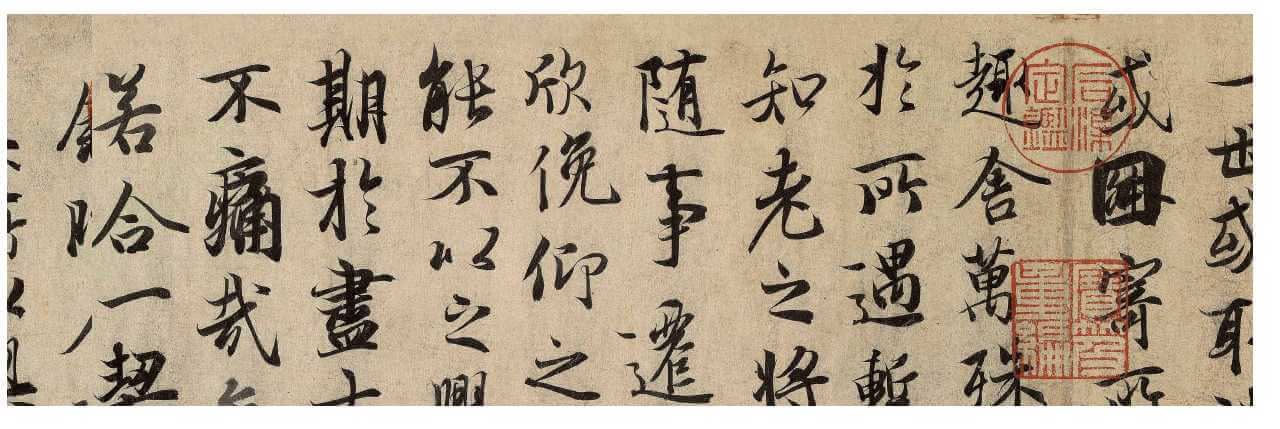 一世或取
或因寄所
趣舍萬殊
於所遇暫
知老之將
隨事遷
欣俛仰之
能不以之興
期於盡
不痛哉
若合一契
石渠定鑑
寶笈重編